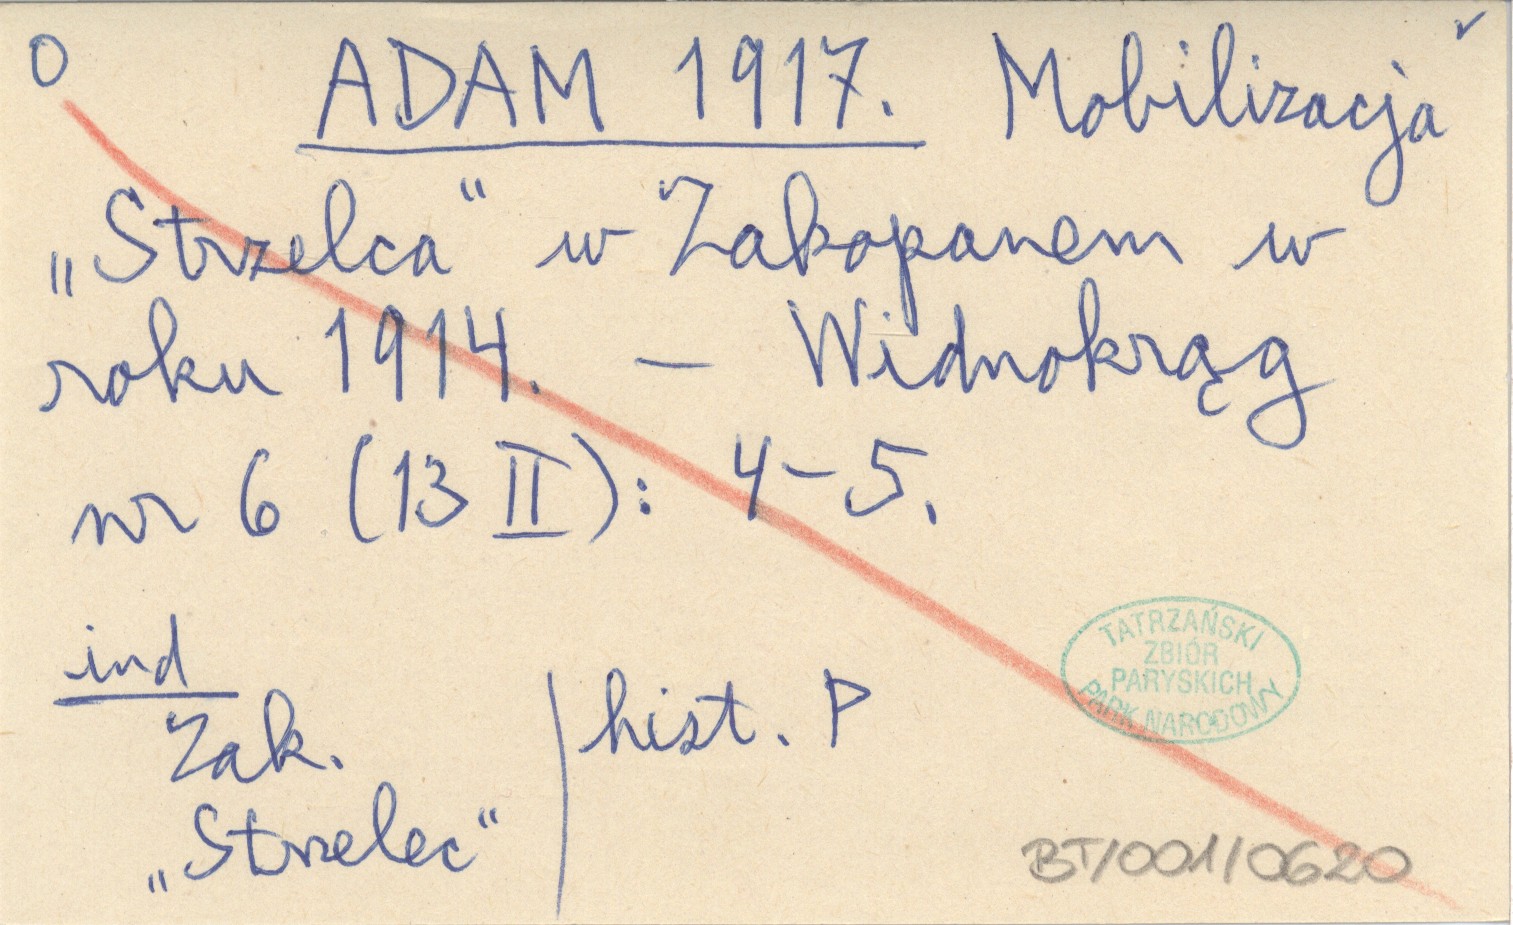 O ADAM 1917. Mobilizacja
„Strzelca" w Zakopanem w
roku 1914. — Widnokrąg
nr 6 (13 II): 4-5.
ind
Zak.
„Strzelec"
hist. P
TATRZAŃSKI
ZBIÓR
PARYSKICH
PARK NARODOWY
BT/001/0620